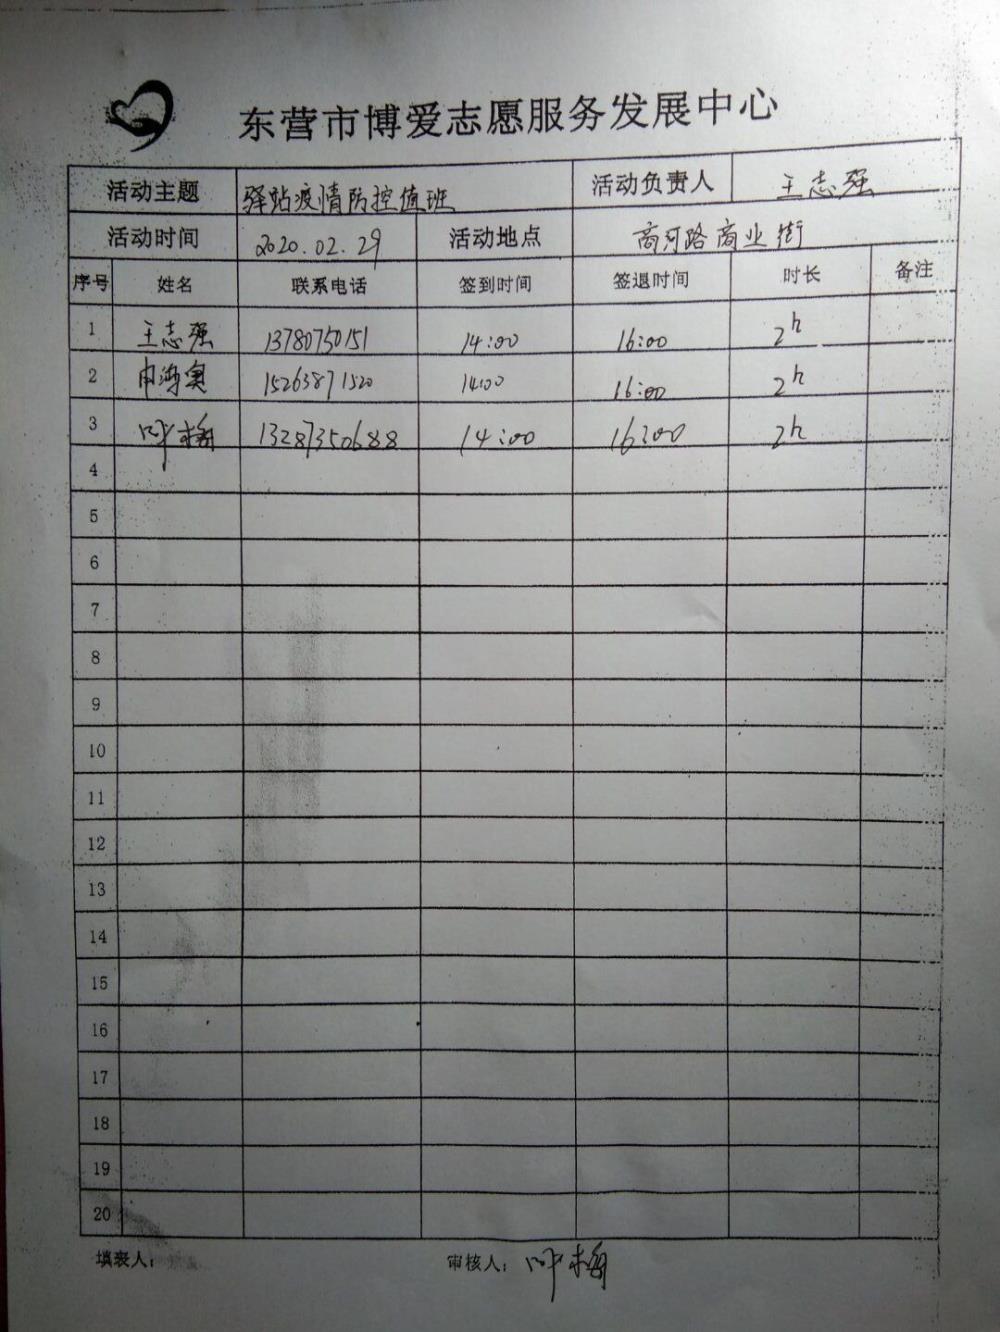 东营市博爱志愿服务发展中心
活动主题 驿站疫情防控值班 活动负责人 王志强
活动时间 2020.02.29 活动地点 商河路商业街
序号 姓名 联系电话 签到时间 签退时间 时长 备注
1 王志强 13780750151 14:00 16:00 2h
2 15263871520 14:00 16:00 2h
3 叶梅 13287350688 14:00 16:00 2h
4
5
6
7
8
9
10
11
12
13
14
15
16
17
18
19
20
填表人： 审核人：叶梅